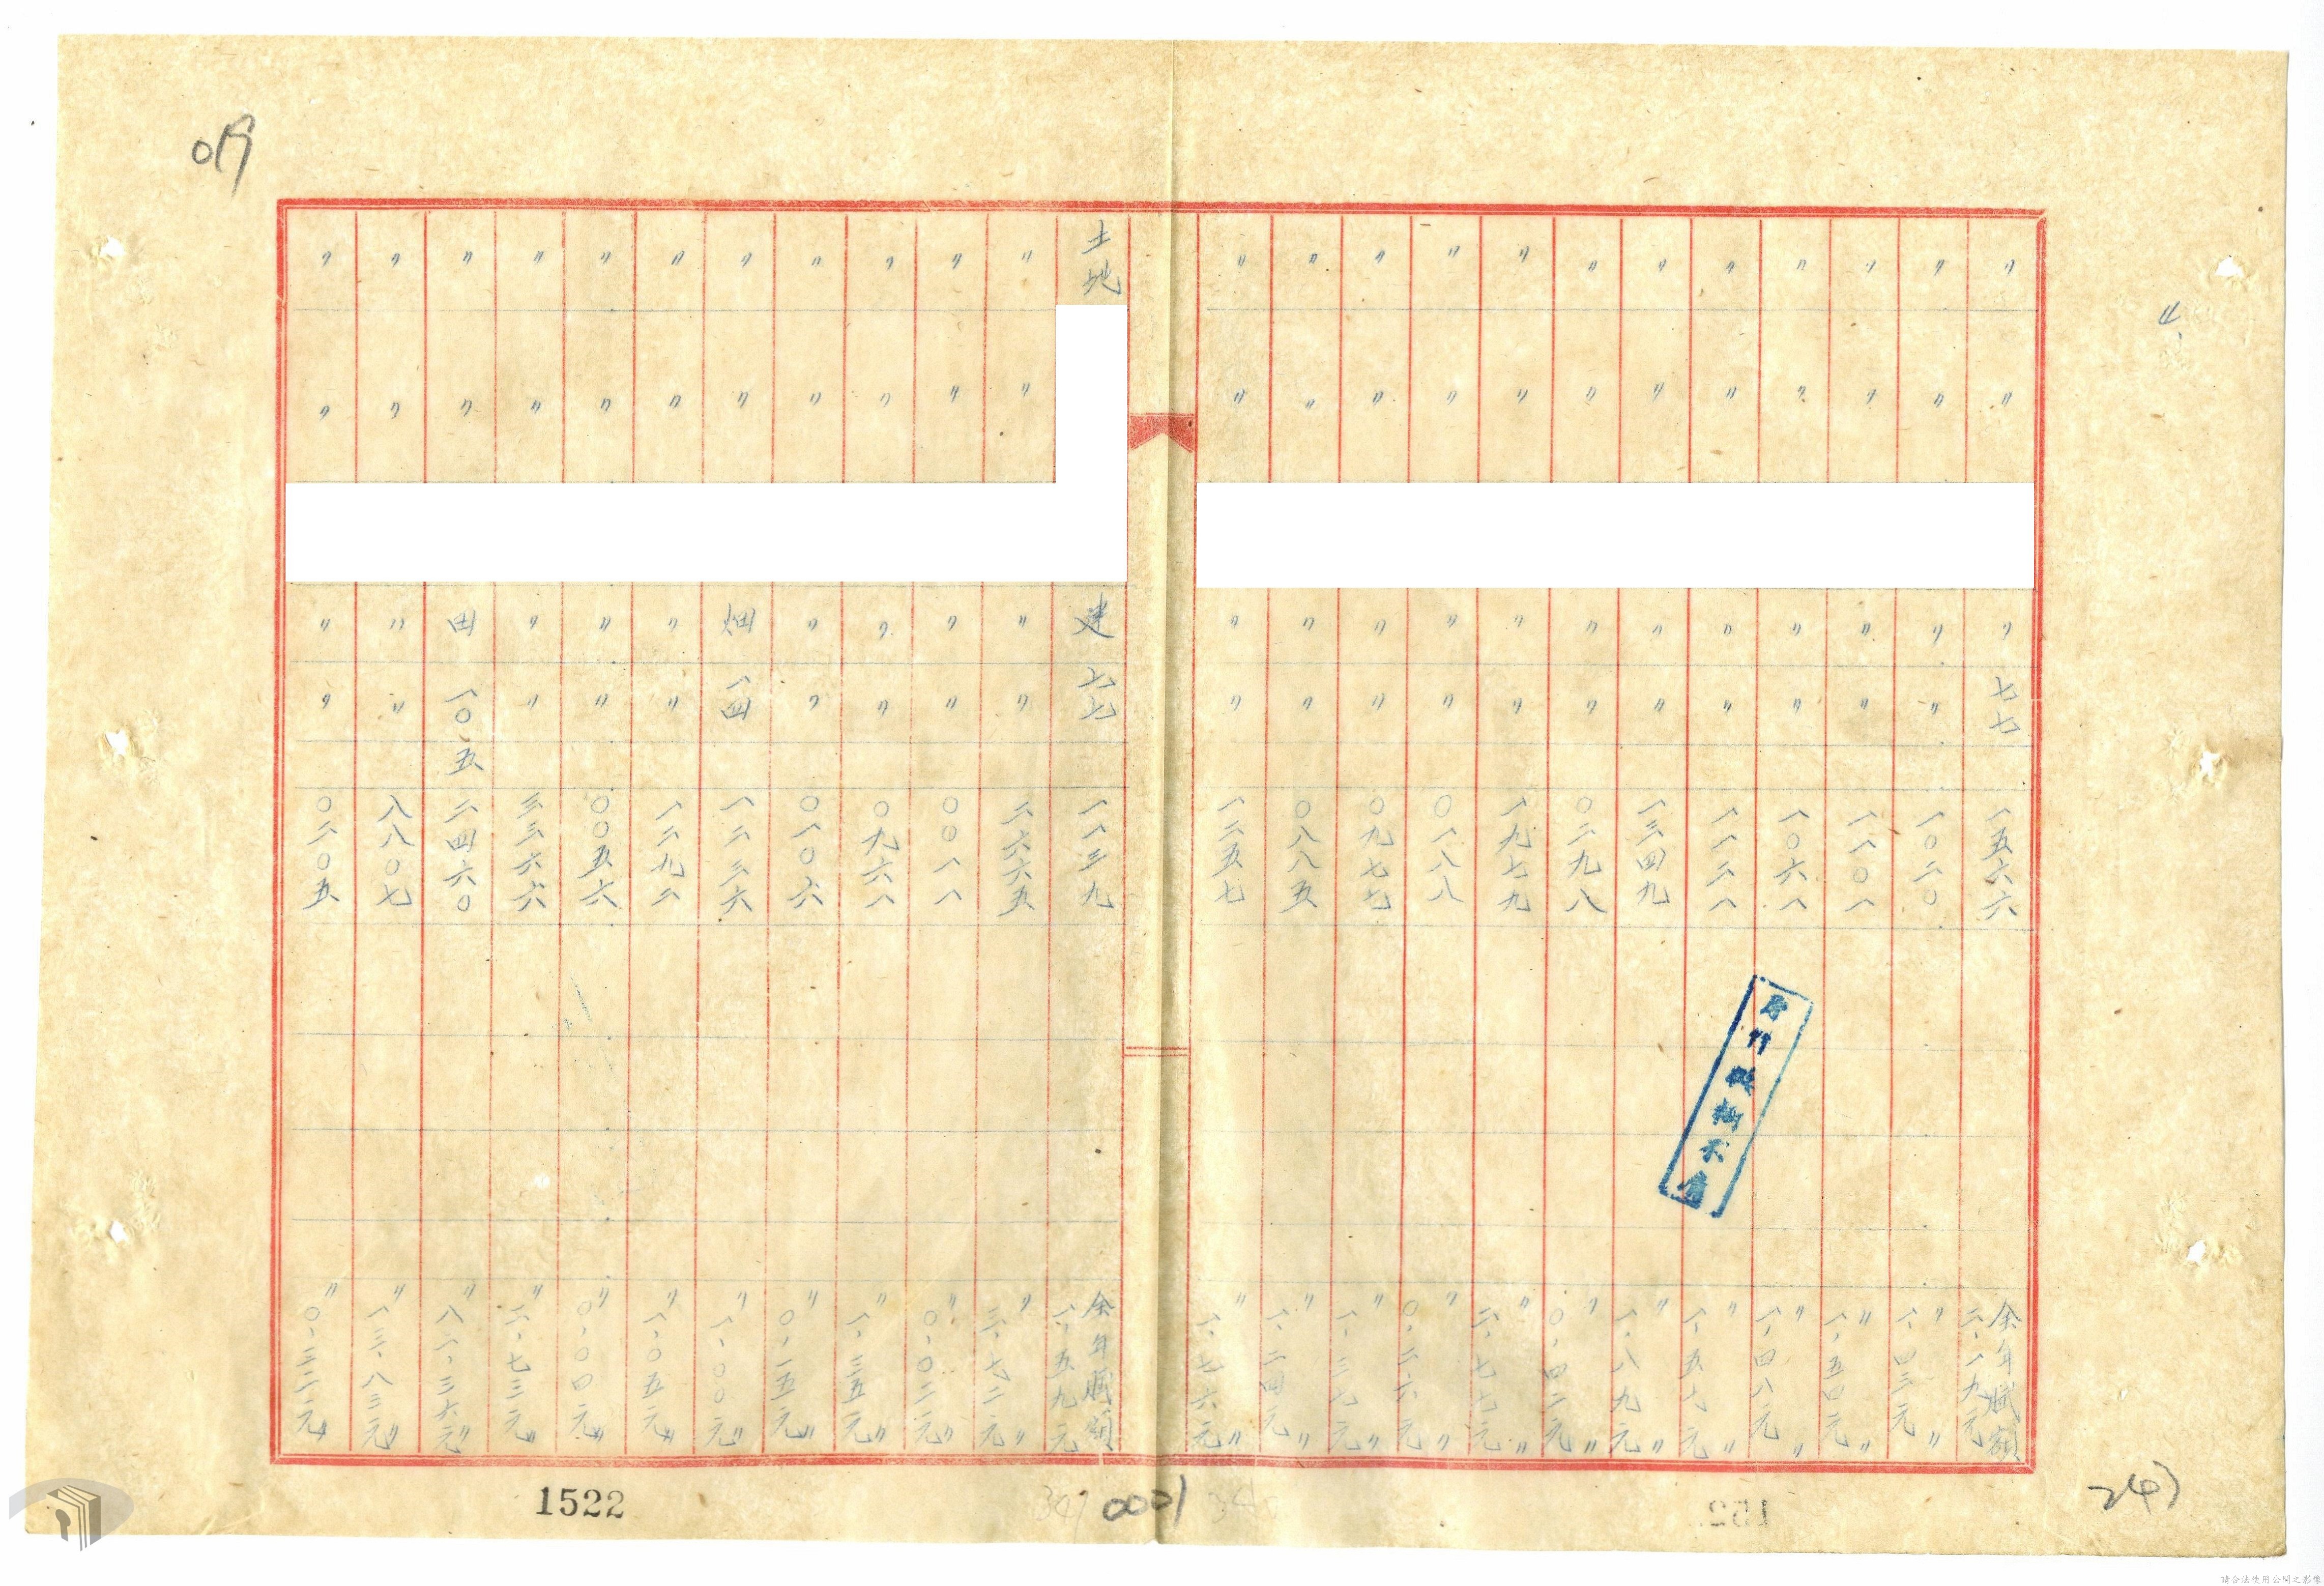 4、
〃 〃 〃 七七 一五六六 全年賦額二、一九元
〃 〃 〃 〃 一〇二〇 〃一、四三元〃
〃 〃 〃 〃 一一〇一 〃一、五四元〃
〃 〃 〃 〃 一〇六一 〃一、四八元〃
〃 〃 〃 〃 一一二一 〃一、五七元〃
〃 〃 〃 〃 一三四九 〃一、八九元〃
〃 〃 〃 〃 〇二九八 〃〇、四二元〃
〃 〃 〃 〃 一九七九 〃二、七七元〃
〃 〃 〃 〃 〇一八八 〃〇、二六元〃
〃 〃 〃 〃 〇九七七 〃一、三七元〃
〃 〃 〃 〃 〇八八五 〃一、二四元〃
〃 〃 〃 〃 一二五七 〃一、七六元〃
土地 建 七七 一一三九 全年賦額一、五九元
〃 〃 〃 〃 二六六五 〃三、七二元〃
〃 〃 〃 〃 〇〇一一 〃〇、〇二元〃
〃 〃 〃 〃 〇九六一 〃一、三五元〃
〃 〃 〃 〃 〇一〇六 〃〇、一五元〃
〃 〃 畑 一四 一二三六 〃一、〇〇元〃
〃 〃 〃 〃 一二九二 〃一、〇五元〃
〃 〃 〃 〃 〇〇五六 〃〇、〇四元〃
〃 〃 〃 〃 三三六六 〃二、七三元〃
〃 〃 田 一〇、五 二四六〇 〃
〃 〃 〃 〃 八八〇七 〃一三、八三元〃
〃 〃 〃 〃 〇二〇五 〃〇、三二元〃
1522
0001
請合法使用公開之影像